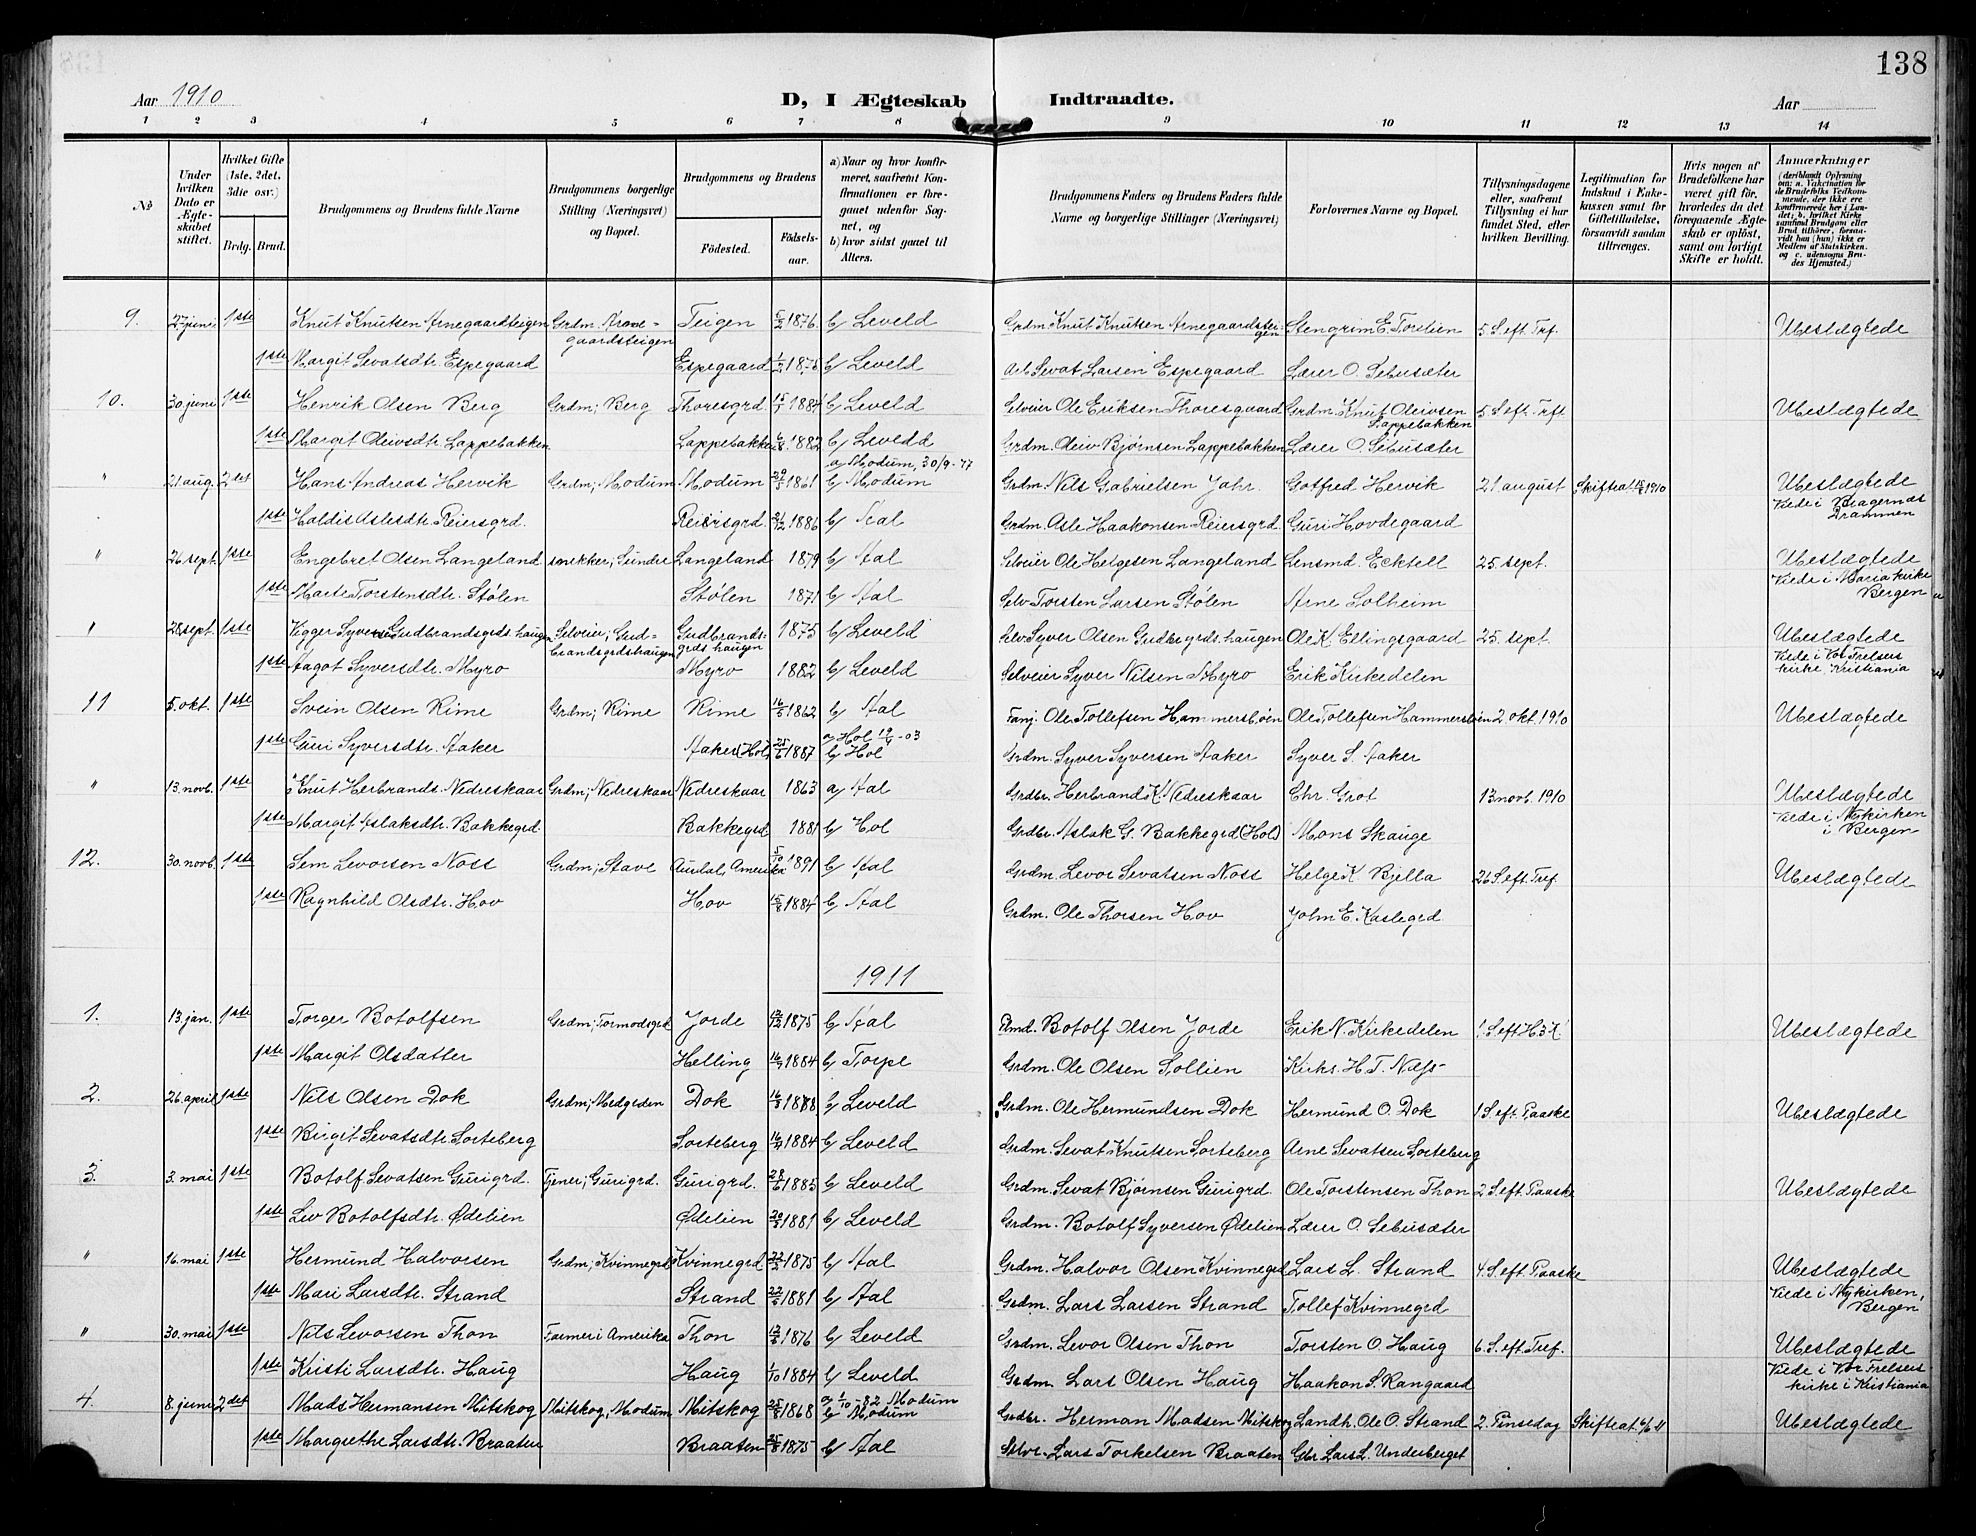 138
Aar 1910 D, I Ægteskab Indtraadte. Aar
1 2 3 4 5 6 7 8 9 10 11 12 13 14
No
Under hvilken Dato er Ægteskabet stiftet.
Hvilket Gifte (1ste, 2det, 3die osv.)
Brdg. Brud.
Brudgommens og Brudens fulde Navne
Brudgommens borgerlige Stilling (Næringsvei) og Bopæl.
Brudgommens og Brudens
Födested. Födselsaar.
a) Naar og hvor konfirmeret, saafremt Konfirmationen er foregaaet udenfor Sognet, og
b) hvor sidst gaaet til Alters.
Brudgommens Faders og Brudens Faders fulde Navne og borgerlige Stillinger (Næringsvei)
Forlovernes Navne og Bopæl.
Tillysningsdagene eller, saafremt Tillysning ei har fundet Sted, efter hvilken Bevilling.
Legitimation for Indskud i Enkekassen samt for Giftetilladelse, forsaavidt saadan tiltrænges.
Hvis nogen af Brudefolkene har været gift för, hvorledes da det foregaaende Ægteskab er oplöst, samt om lovligt Skifte er holdt.
Anmærkninger
(deriblandt Oplysning om: a. Vakcination for de Brudefolks Vedkommende, der ikke ere konfirmerede her i Landet; b. hvilket Kirkesamfund Brudgom eller Brud tilhörer, forsaavidt han (hun) ikke er Medlem af Statskirken, og c. udensogns Brudes Hjemsted.)
9. 2 juni 1ste Knut Knutsen Arnegaardteigen Grdm. Arnegaardsteigen Teigen 1876 b/ Leveld Grdm. Knut Knutsen Arnegaardsteigen Stengrim E. Torslien 5. S. eft. Trf. Ubeslægtede
1ste Margit Sevatsdtr. Espegaard Espegaard 1875 b/ Leveld Arb. Sevat Larsen Espegaard Lærer O. Sebusæter
10. 30. juni 1ste Henrik Olsen Berg Grdm; Berg Thoresgrd 1884 b/ Leveld Selveier Ole Eriksen Thoresgaard Grdm. Knut Oleivsen Lappebakken 5. S. eft. Trf. Ubeslægtede
1ste Margit Oleivsdtr. Lappebakken Lappebakken 1882 b/ Leveld Grdm. Oleiv Bjørnsen Lappebakken Lærer O. Sebusæter
" 21 aug. 2det Hans Andreas Hervik Grdm; Modum Modum 1861 a/ Modum, 30/9-77 b/ Modum Grdm. Nils Gabrielsen Jahr Gotfred Hervik 21 august Skifteat. 1910 Ubeslægtede
1ste Holdis Aslesdtr. Reiersgrd. Reiersgrd. 1886 b/ Aal Grdm. Asle Haakonsen Reiersgrd. Guri Hovdegaard Viede i Bragernæs Drammen
" 26 sept. 1ste Engebret Olsen Langeland snekker; Sundre Langeland 1879 b/ Aal Selveier Ole Helgesen Langeland Lensmd. Ecktell 25. sept. Ubeslægtede
1ste Marte Torstensdtr. Stølen Stølen 1871 b/ Aal Selv Torsten Larsen Stølen Arne Solheim Viede i Mariakirke Bergen
" 28 sept. 1ste Vigger Syversen Gudbrandsgrdshaugen Selveier; Gudbrandsgrdshaugen Gudbrandsgrdshaugen 1875 b/ Leveld Selv Syver Olsen Gudbr.grds.haugen Ole K. Ellingsgaard 25. sept. Ubeslægtede
1ste Aagot Syversdtr. Myro Myro 1882 b/ Leveld Selveier Syver Nilsen Myro Erik Kirkedelen Viede i Vor Frelsers kirke, Kristiania
11 5. okt. 1ste Svein Olsen Rime Grdm; Rime Rime 16/5 1862 b/ Aal Fanj. Ole Tollefsen Hammersbøen Ole Tollefsen Hammersbøen 2 okt. 1910 Ubeslægtede
1ste Guri Syversdtr. Aaker Aaker (Hol) 1887 a/ Hol -03 b/ Hol Grdm. Syver Syversen Aaker Syver S. Aaker
" 13. novb. 1ste Knut Herbrands. Nedreskaar Grdm; Nedreskaar Nedreskaar 1863 a/ Aal Grdbr. Herbrand K. Nedreskaar Chr. Grot 13 novb. 1910 Ubeslægtede
1ste Margit Aslaksdtr. Bakkegrd. Bakkegrd 1881 b/ Hol Grdbr. Aslak G. Bakkegrd (Hol) Mons Skauge Viede i Nykirken i Bergen
12. 30. novb. 1ste Sem Levorsen Noss Grdm; Stave Aurdal, Amerika 5/10 1891 b/ Aal Grdm. Levor Sevatsen Noss Helge K. Bjella 26 S. eft. Tref. Ubeslægtede
1ste Ragnhild Olsdtr. Hov Hov 15/8 1884 b/ Aal Grdm. Ole Thorsen Hov John E. Kaslegrd
1911
1. 13. jan. 1ste Torger Botolfsen Grdm; Tormodsgrd Jorde 1875 b/ Aal Botolf Olsen Jorde Erik N. Kirkedelen 1. S. eft H3K Ubeslægtede
1ste Margit Olsdatter Helling 1884 b/ Torpe Grdm. Ole Olsen Sollien Kirks. H. T. Næss
2. 26. april 1ste Nils Olsen Dok Grdm; Medgeden Dok 1888 b/ Leveld Grdm. Ole Hermundsen Dok Hermund O. Dok 1 S. eft. Paaske Ubeslægtede
1ste Birgit Sevatsdtr. Sorteberg Sorteberg 1884 b/ Leveld Grdm. Sevat Knutsen Sorteberg Arne Sevatsen Sorteberg
3. 3. mai 1ste Botolf Sevatsen Gurigrd. Tjener; Gurigrd. Gurigrd. 28/6 1885 b/ Leveld Grdm. Sevat Bjørnsen Gurigrd. Ole Torstensen Thon 2 S. eft. Paaske Ubeslægtede
1ste Liv Botolfsdtr. Ødelien Ødelien 1881 b/ Leveld Grdm. Botolf Syversen Ødelien Lærer O. Sebusæter
" 16. mai 1ste Hermund Halvorsen Grdm; Kvinnegrd Kvinnegrd 22/2 1875 b/ Aal Grdm. Halvor Olsen Kvinnegrd Lars L. Strand 4. S. eft Paaske Ubeslægtede
1ste Mari Larsdtr. Strand Strand 22/6 1881 b/ Aal Grdm. Lars Larsen Strand Tollef Kvinnegrd Viede i Nykirken, Bergen
" 30. mai 1ste Nils Levorsen Thon Farmer i Amerika Thon 1876 b/ Leveld Grdm. Levor Olsen Thon Torsten O. Haug 6. S. eft Tref. Ubeslægtede
1ste Kristi Larsdtr. Haug Haug 1/10 1884 b/ Leveld Grdm. Lars Olsen Haug Haakon S. Rangaard Viede i Vor Frelsers kirke i Kristiania
4. 8. juni 2det Mads Hermansen Mitskog Mitskog, Modum Mitskog 25/8 1868 a/ 1/10-82 Modum b/ Modum Grdbr. Herman Madsen Mitskog Landh. Ole O. Strand 2. Pinsedag Skifteat 6/6 11 Ubeslægtede
1ste Margrethe Larsdtr. Braaten Braaten 1875 b/ Aal Selvr. Lars Torkelsen Braaten Gbr. Lars L. Underberget